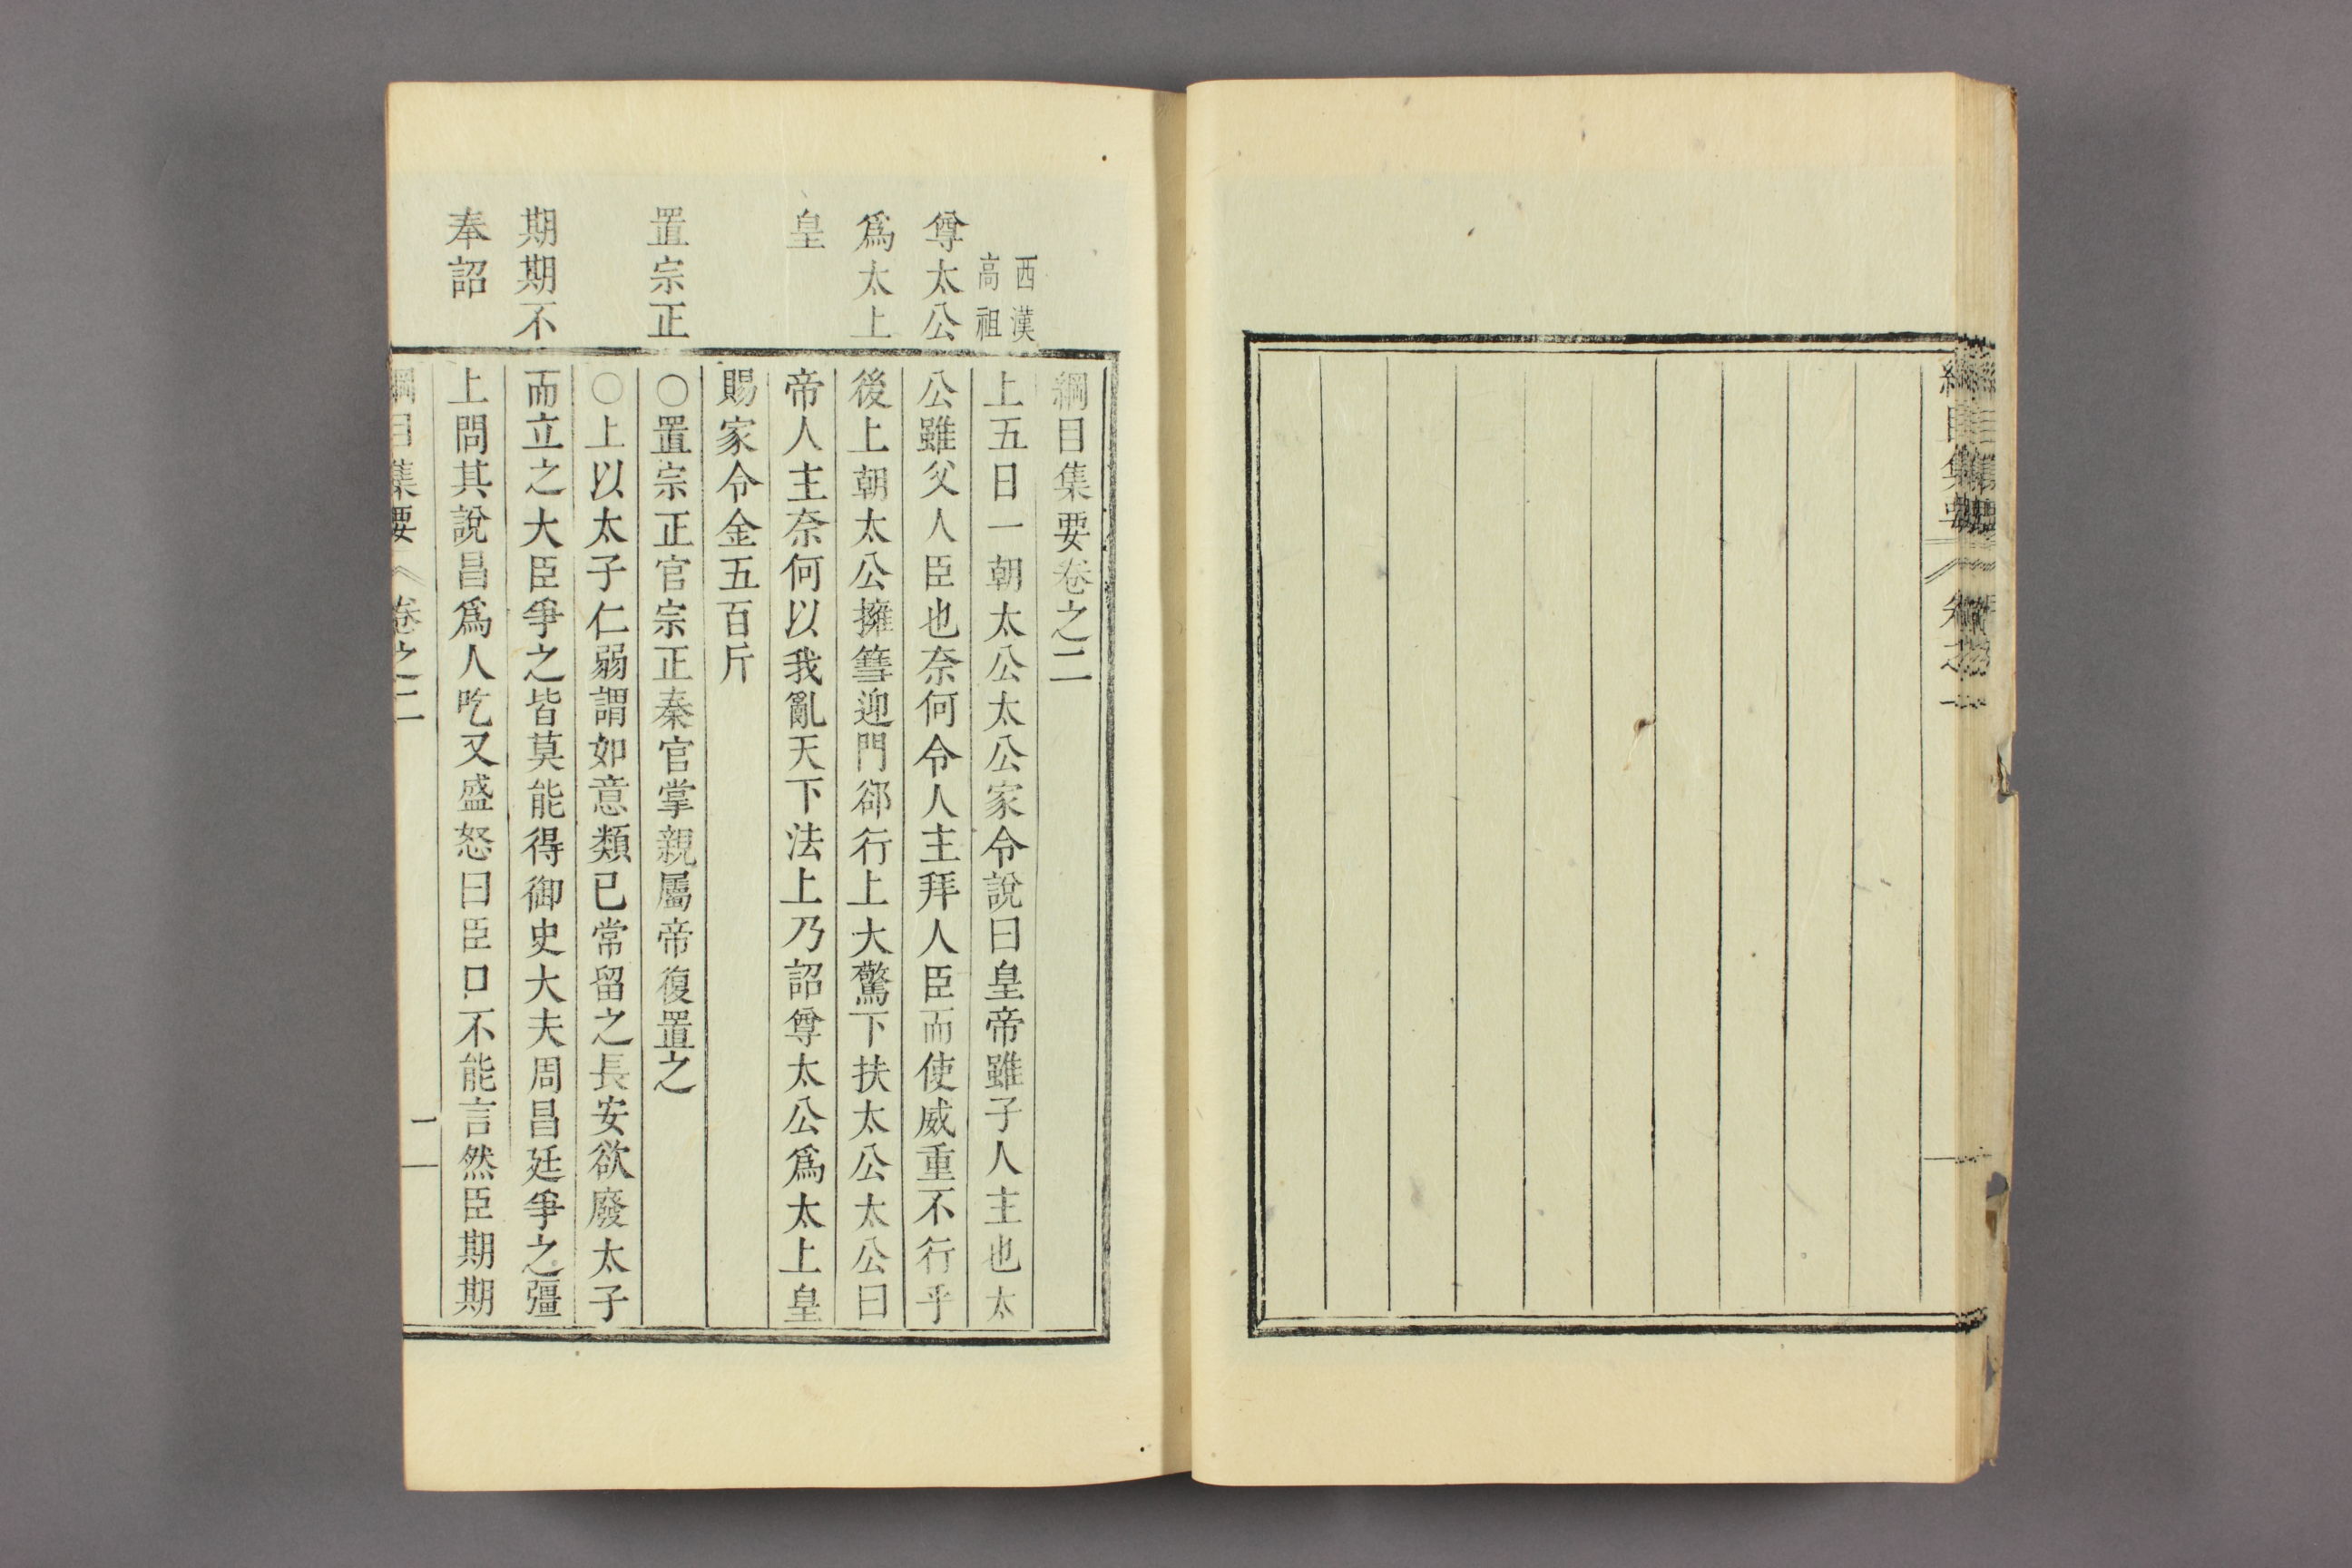 綱目集要卷之二
西漢
高祖
尊太公
爲太上
皇
置宗正
期期不
奉詔
上五日一朝太公太公家令說曰皇帝雖子人主也太
公雖父人臣也奈何令人主拜人臣而使威重不行乎
後上朝太公擁篲迎門郤行上大驚下扶太公太公曰
帝人主奈何以我亂天下法上乃詔尊太公爲太上皇
賜家令金五百斤
○置宗正官宗正秦官掌親屬帝復置之
○上以太子仁弱謂如意類已常留之長安欲廢太子
而立之大臣爭之皆莫能得御史大夫周昌廷爭之彊
上問其說昌爲人吃又盛怒曰臣口不能言然臣期期
綱目集要 卷之二 一